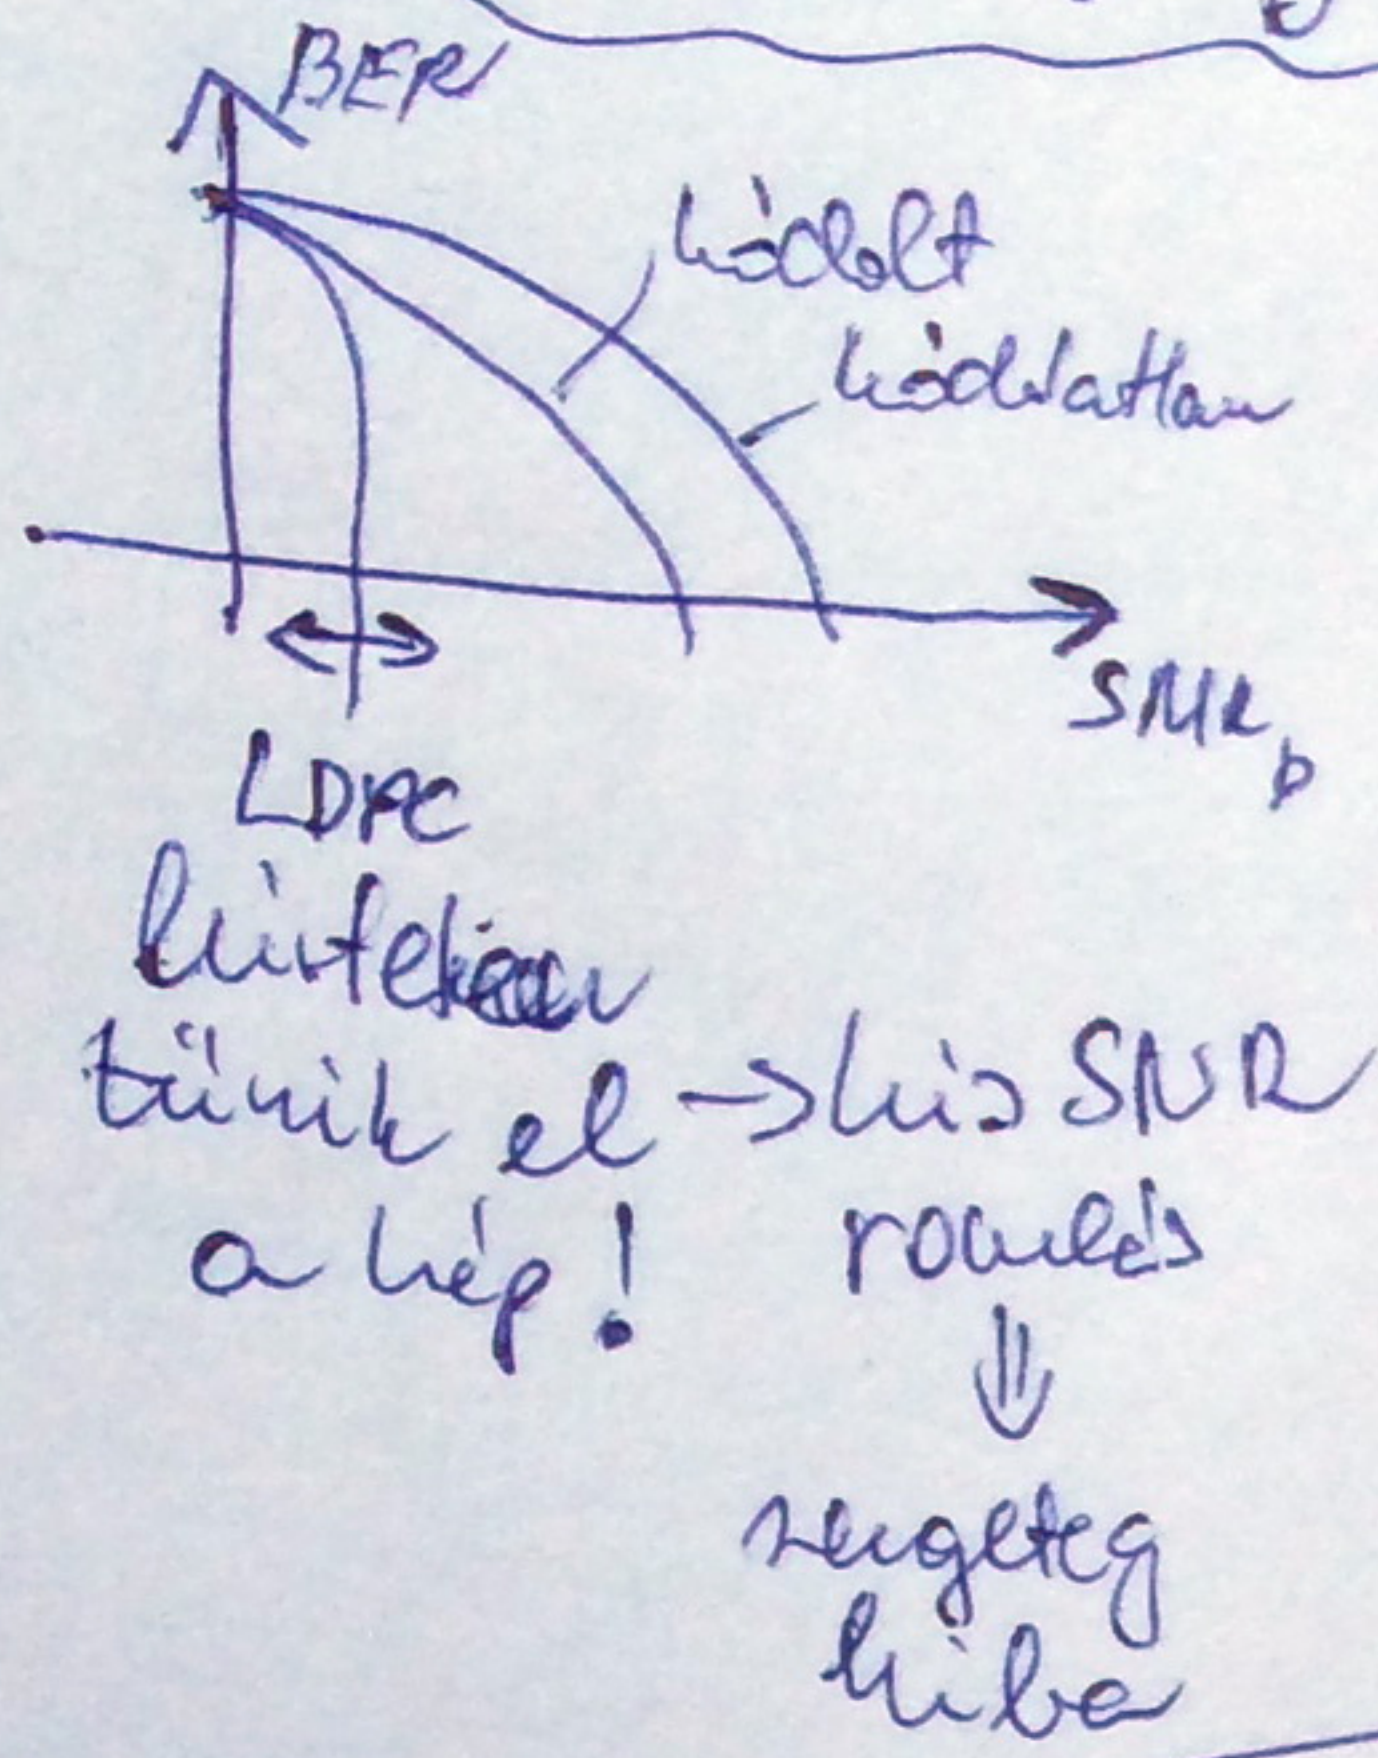 BER
kódolt
kódolatlan
SNR_b
LDPC
hirtelen
tűnik el → kis SNR
a kép! romlás
⇓
rengeteg
hiba